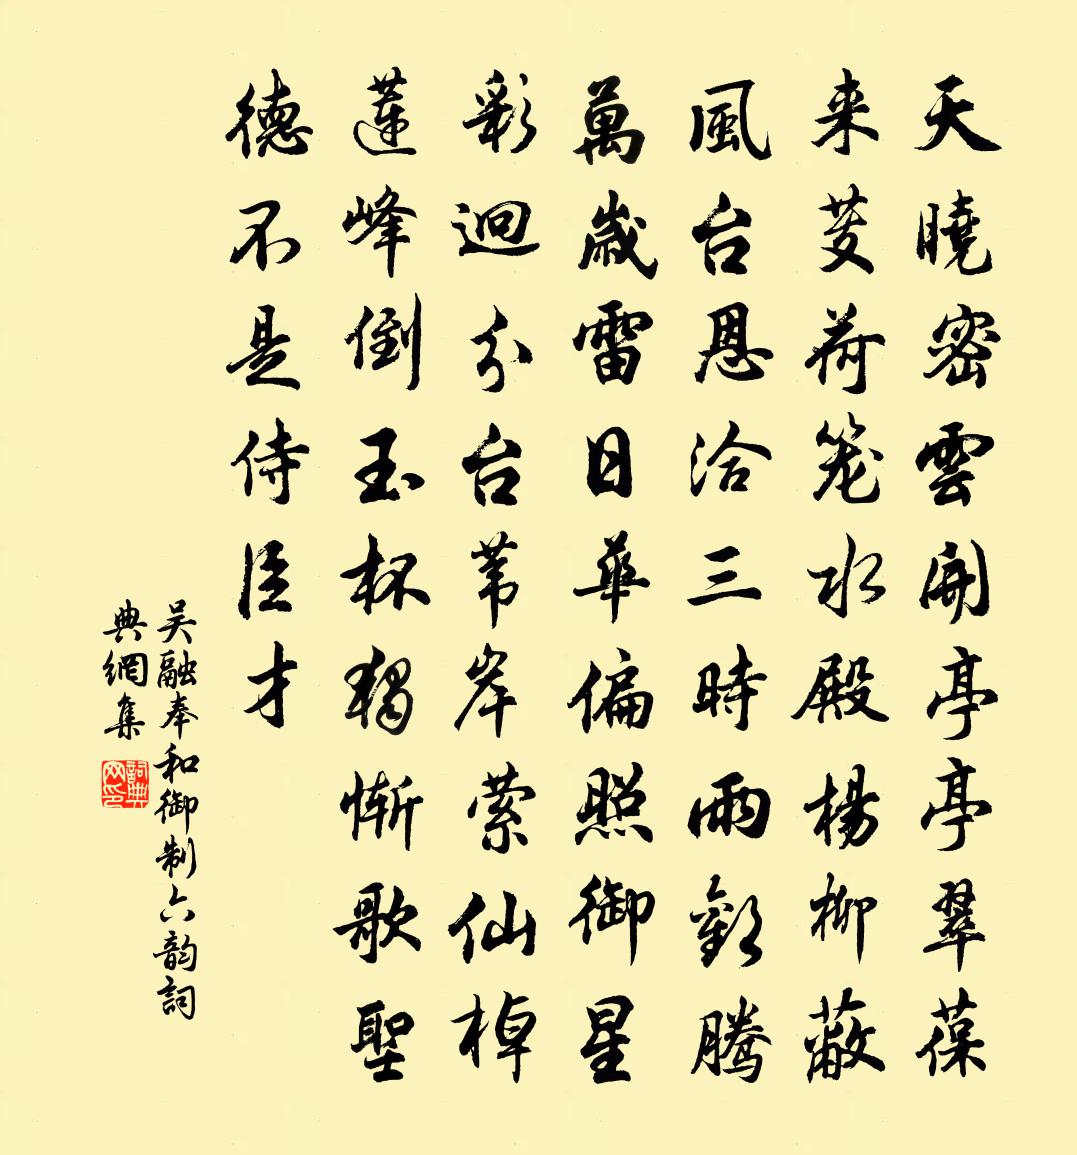 天曉密雲開亭亭翠葆
来芰荷笼水殿楊柳蔽
風台恩洽三時雨歡腾
萬歲雷日華偏照御星
彩迴分台苇岸萦仙棹
蓮峰倒玉杯獨慚歌聖
德不是侍臣才
吴融奉和御制六韵詞
典網集
詞典网印